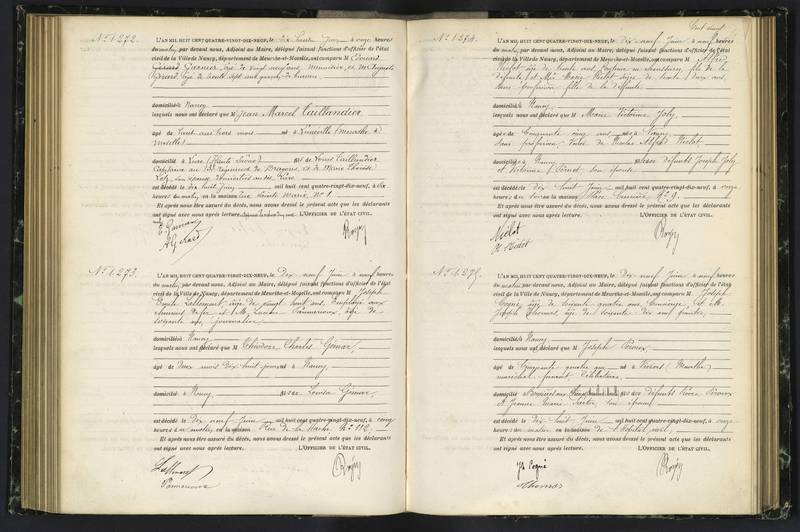 N° 1.272.
L'AN MIL HUIT CENT QUATRE-VINGT-DIX-NEUF, le dix huit Juin à onze heures
du matin, par devant nous, Adjoint au Maire, délégué faisant fonctions d'officier de l'état
civil de la Ville de Nancy, département de Meurthe-et-Moselle, ont comparu M Edouard
Garnier, âgé de vingt neuf ans, menuisier, et M Auguste
Gérard, âgé de trente sept ans, garçon de bureau
domiciliés à Nancy
lesquels nous ont déclaré que M Jean Marcel Caillandier
âgé de huit ans trois mois né à Lunéville (Meurthe &
Moselle)
domicilié à Lure (Haute Saône) fils de Louis Caillandier
Capitaine au Régiment de Dragons, et de Marie Thérèse
son épouse domiciliés au dit Lure
est décédé le dix huit Juin mil huit cent quatre-vingt-dix-neuf, à dix
heures du matin, en la maison rue Sainte Marie, N° 1
Et après nous être assuré du décès, nous avons dressé le présent acte que les déclarants
ont signé avec nous après lecture. L'OFFICIER DE L'ÉTAT CIVIL.
E. Garnier
A. Gérard
N° 1.273.
L'AN MIL HUIT CENT QUATRE-VINGT-DIX-NEUF, le Dix neuf Juin à neuf heures
du matin, par devant nous, Adjoint au Maire, délégué faisant fonctions d'officier de l'état
civil de la Ville de Nancy, département de Meurthe-et-Moselle, ont comparu M Joseph
Emile Lallement, âgé de vingt huit ans, Employé aux
chemins de fer, et M. Pannarioux, âgé de
soixante ans, journalier
domiciliés à Nancy
lesquels nous ont déclaré que M Théodore Charles Gémar
âgé de deux mois dix huit jours né à Nancy
domicilié à Nancy fils de Louise Gémar
est décédé le dix neuf Juin mil huit cent quatre-vingt-dix-neuf, à cinq
heures du matin, en la maison Rue de la Hache N° 112
Et après nous être assuré du décès, nous avons dressé le présent acte que les déclarants
ont signé avec nous après lecture. L'OFFICIER DE L'ÉTAT CIVIL.
Pannarioux
N° 1.274.
L'AN MIL HUIT CENT QUATRE-VINGT-DIX-NEUF, le Dix neuf Juin à neuf heures
du matin, par devant nous, Adjoint au Maire, délégué faisant fonctions d'officier de l'état
civil de la Ville de Nancy, département de Meurthe-et-Moselle, ont comparu M Alfred
âgé de trente ans, fils de la
défunte, et Mlle Marie âgée de trente deux ans,
sans profession, fille de la défunte
domiciliés à Nancy
lesquels nous ont déclaré que M Marie Victorine Joly
âgée de Cinquante cinq ans née à Nancy
sans profession, Veuve de Nicolas Alfred
domiciliée à Nancy fille des défunts Joseph Joly
et Victorine son épouse
est décédée le dix huit Juin mil huit cent quatre-vingt-dix-neuf, à onze
heures du soir en la maison Place N° 9
Et après nous être assuré du décès, nous avons dressé le présent acte que les déclarants
ont signé avec nous après lecture. L'OFFICIER DE L'ÉTAT CIVIL.
N° 1.275.
L'AN MIL HUIT CENT QUATRE-VINGT-DIX-NEUF, le Dix neuf Juin à neuf heures
du matin, par devant nous, Adjoint au Maire, délégué faisant fonctions d'officier de l'état
civil de la Ville de Nancy, département de Meurthe-et-Moselle, ont comparu M Joseph
âgé de soixante quatre ans, Concierge, et M.
Joseph Thomas, âgé de soixante dix ans
domiciliés à Nancy
lesquels nous ont déclaré que M Joseph
âgé de Cinquante quatre ans né à (Meurthe)
maréchal ferrant, célibataire
domicilié fils des défunts Pierre
et Jeanne Marie son épouse
est décédé le dix huit Juin mil huit cent quatre-vingt-dix-neuf, à onze
heures du matin en la maison de l'hôpital civil
Et après nous être assuré du décès, nous avons dressé le présent acte que les déclarants
ont signé avec nous après lecture. L'OFFICIER DE L'ÉTAT CIVIL.
Thomas